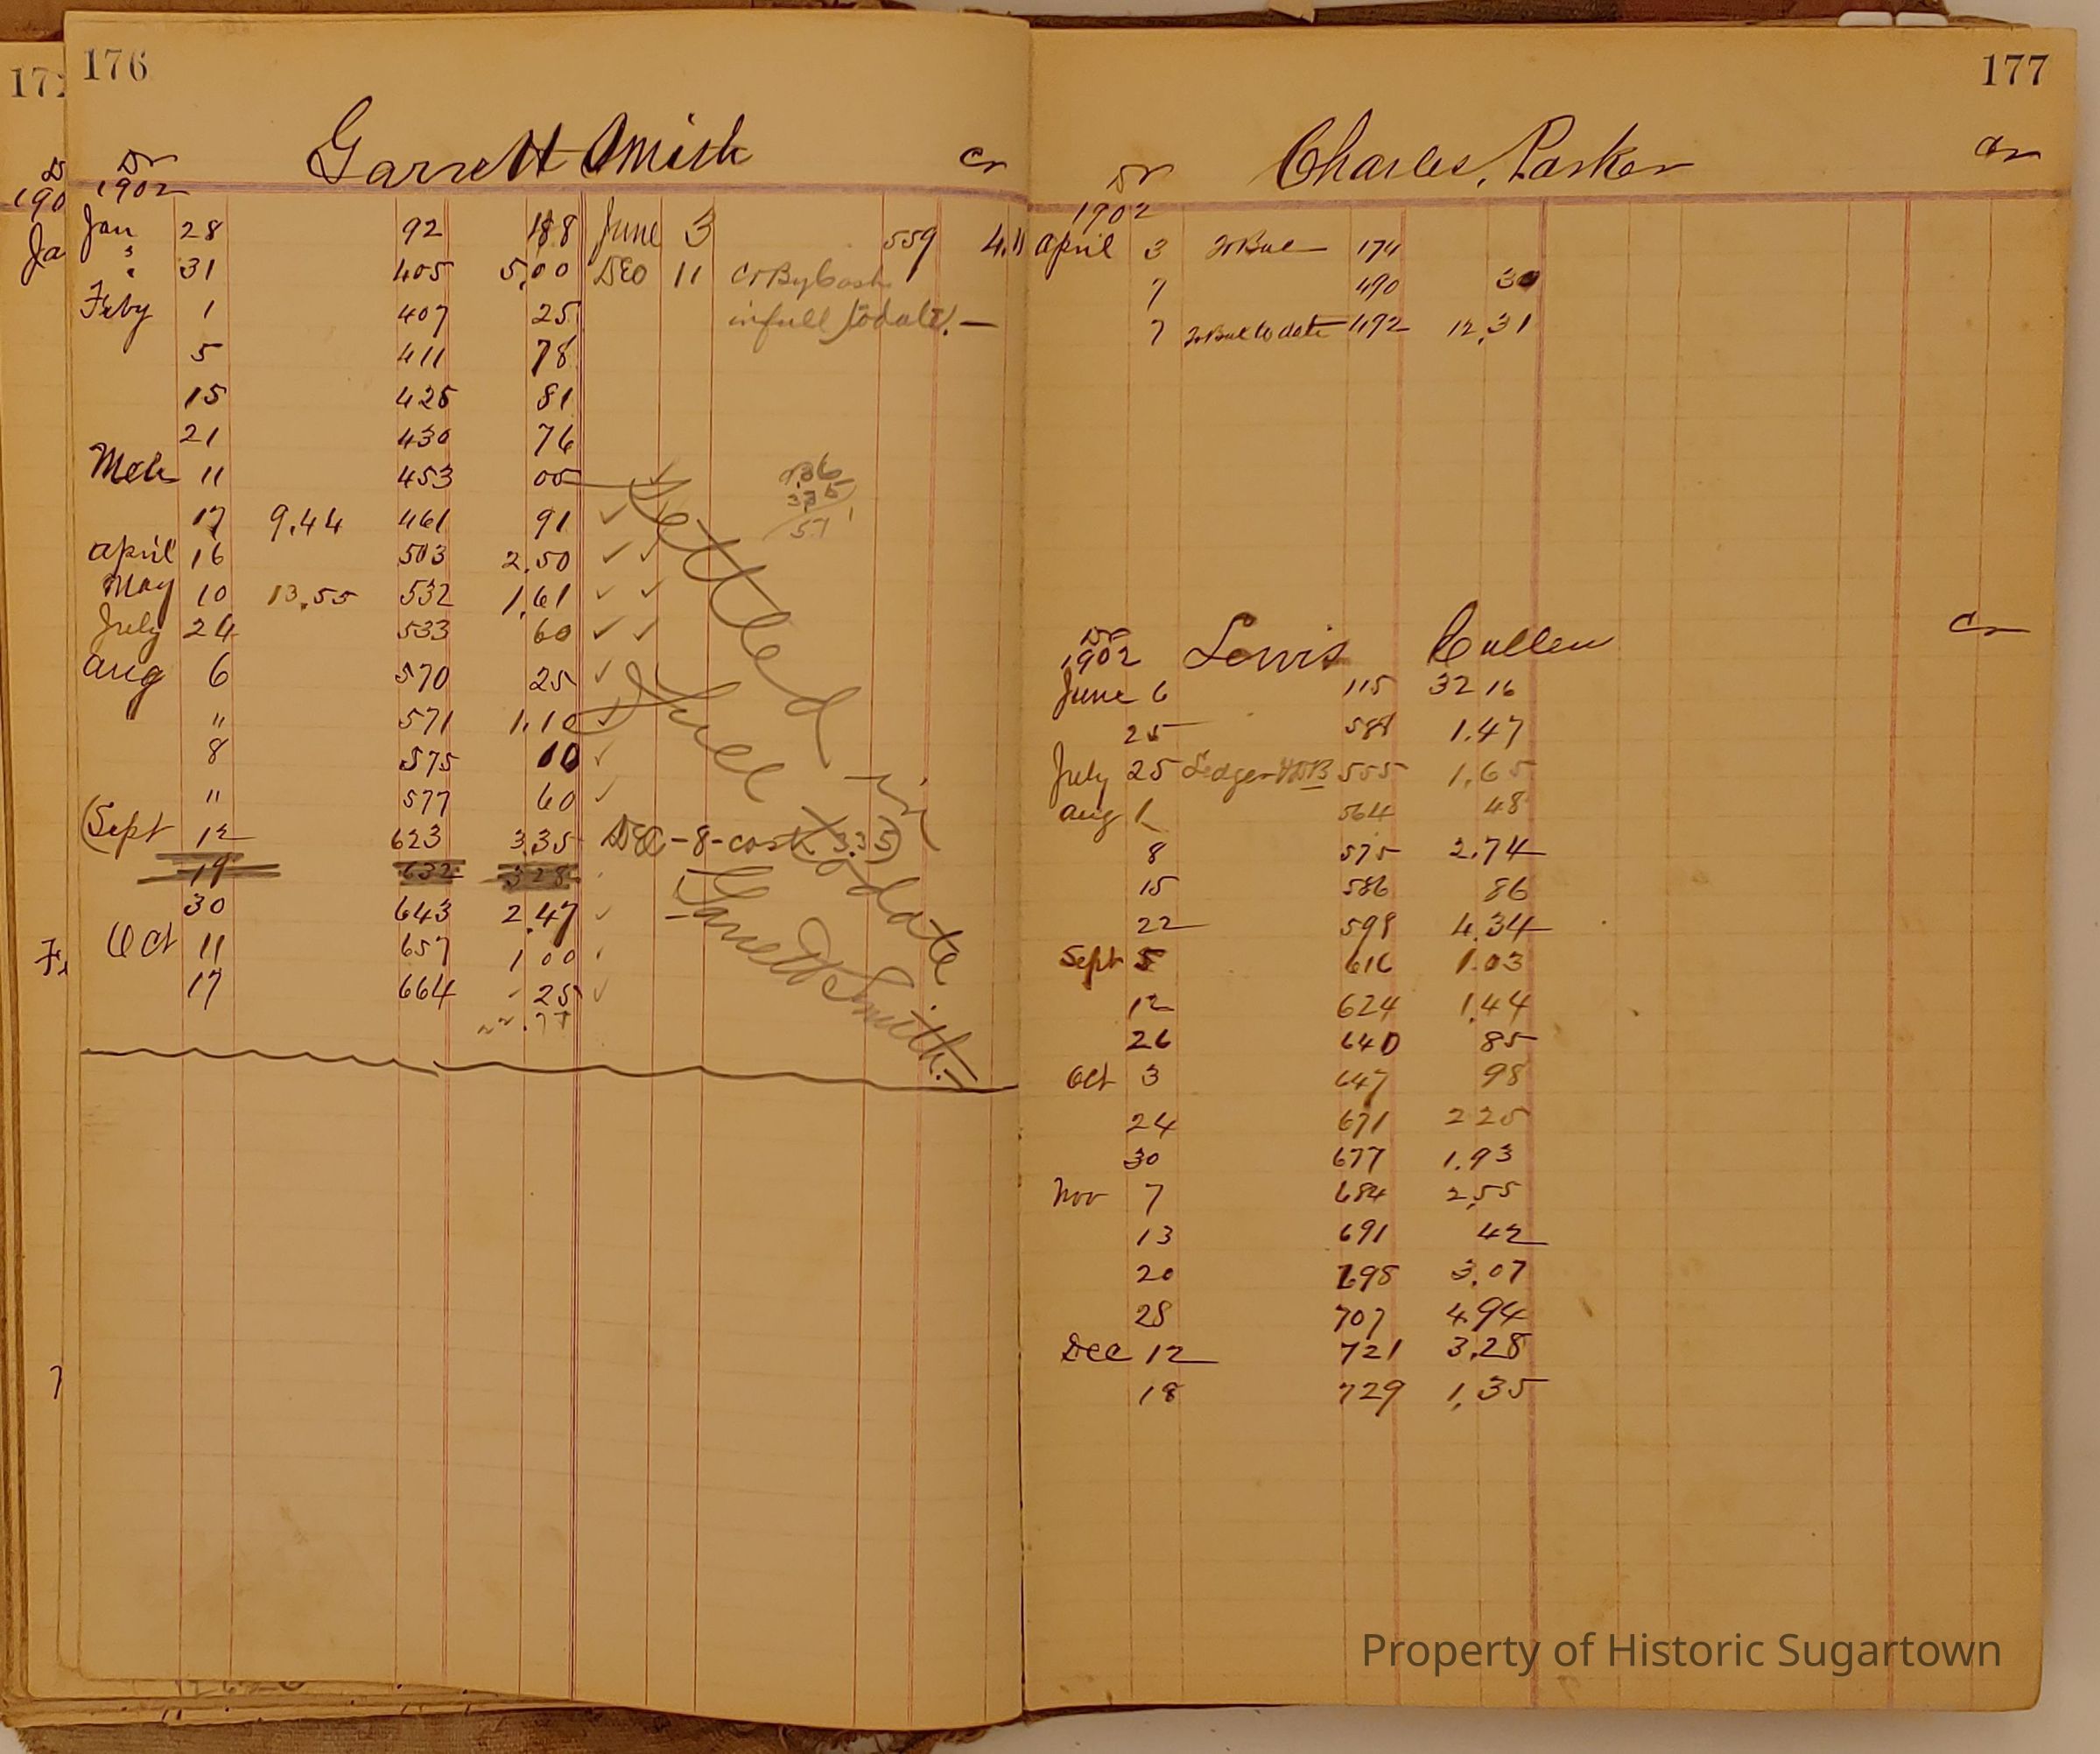 176
Garrett Smith
Dr Cr
1902
Jan 28 92 188 June 3 559 4.11
" 31 405 5,00 DEC 11 Cr By Cash
Feby 1 407 25 in full to date. —
5 411 78
15 425 81
21 430 76
Mch 11 453 05
17 9.44 461 91
April 16 503 2.50
May 10 13.55 532 1,61
July 24 533 60
Aug 6 570 25
" 571 1.10
8 575 10
" 577 60
(Sept 12 623 3.35 DEC - 8 - cash 3.35)
19 632 328
30 643 2.47
Oct 11 657 1 00
17 664 25
Settled in
full to date
Garrett Smith.
177
Charles, Parker
Dr Cr
1902
April 3 To Bal 174
7 490 30
7 To Bal to date 492 12,31
Dr Lewis Cullen Cr
1902
June 6 115 32 16
25 588 1.47
July 25 Ledger 555 1.65
Aug 1 564 48
8 575 2.74
15 586 86
22 598 4.34
Sept 5 616 1.03
12 624 1.44
26 640 85
Oct 3 647 98
24 671 2 25
30 677 1.93
Nov 7 684 2,55
13 691 42
20 698 3.07
28 707 4.94
Dec 12 721 3.28
18 729 1,35
Property of Historic Sugartown